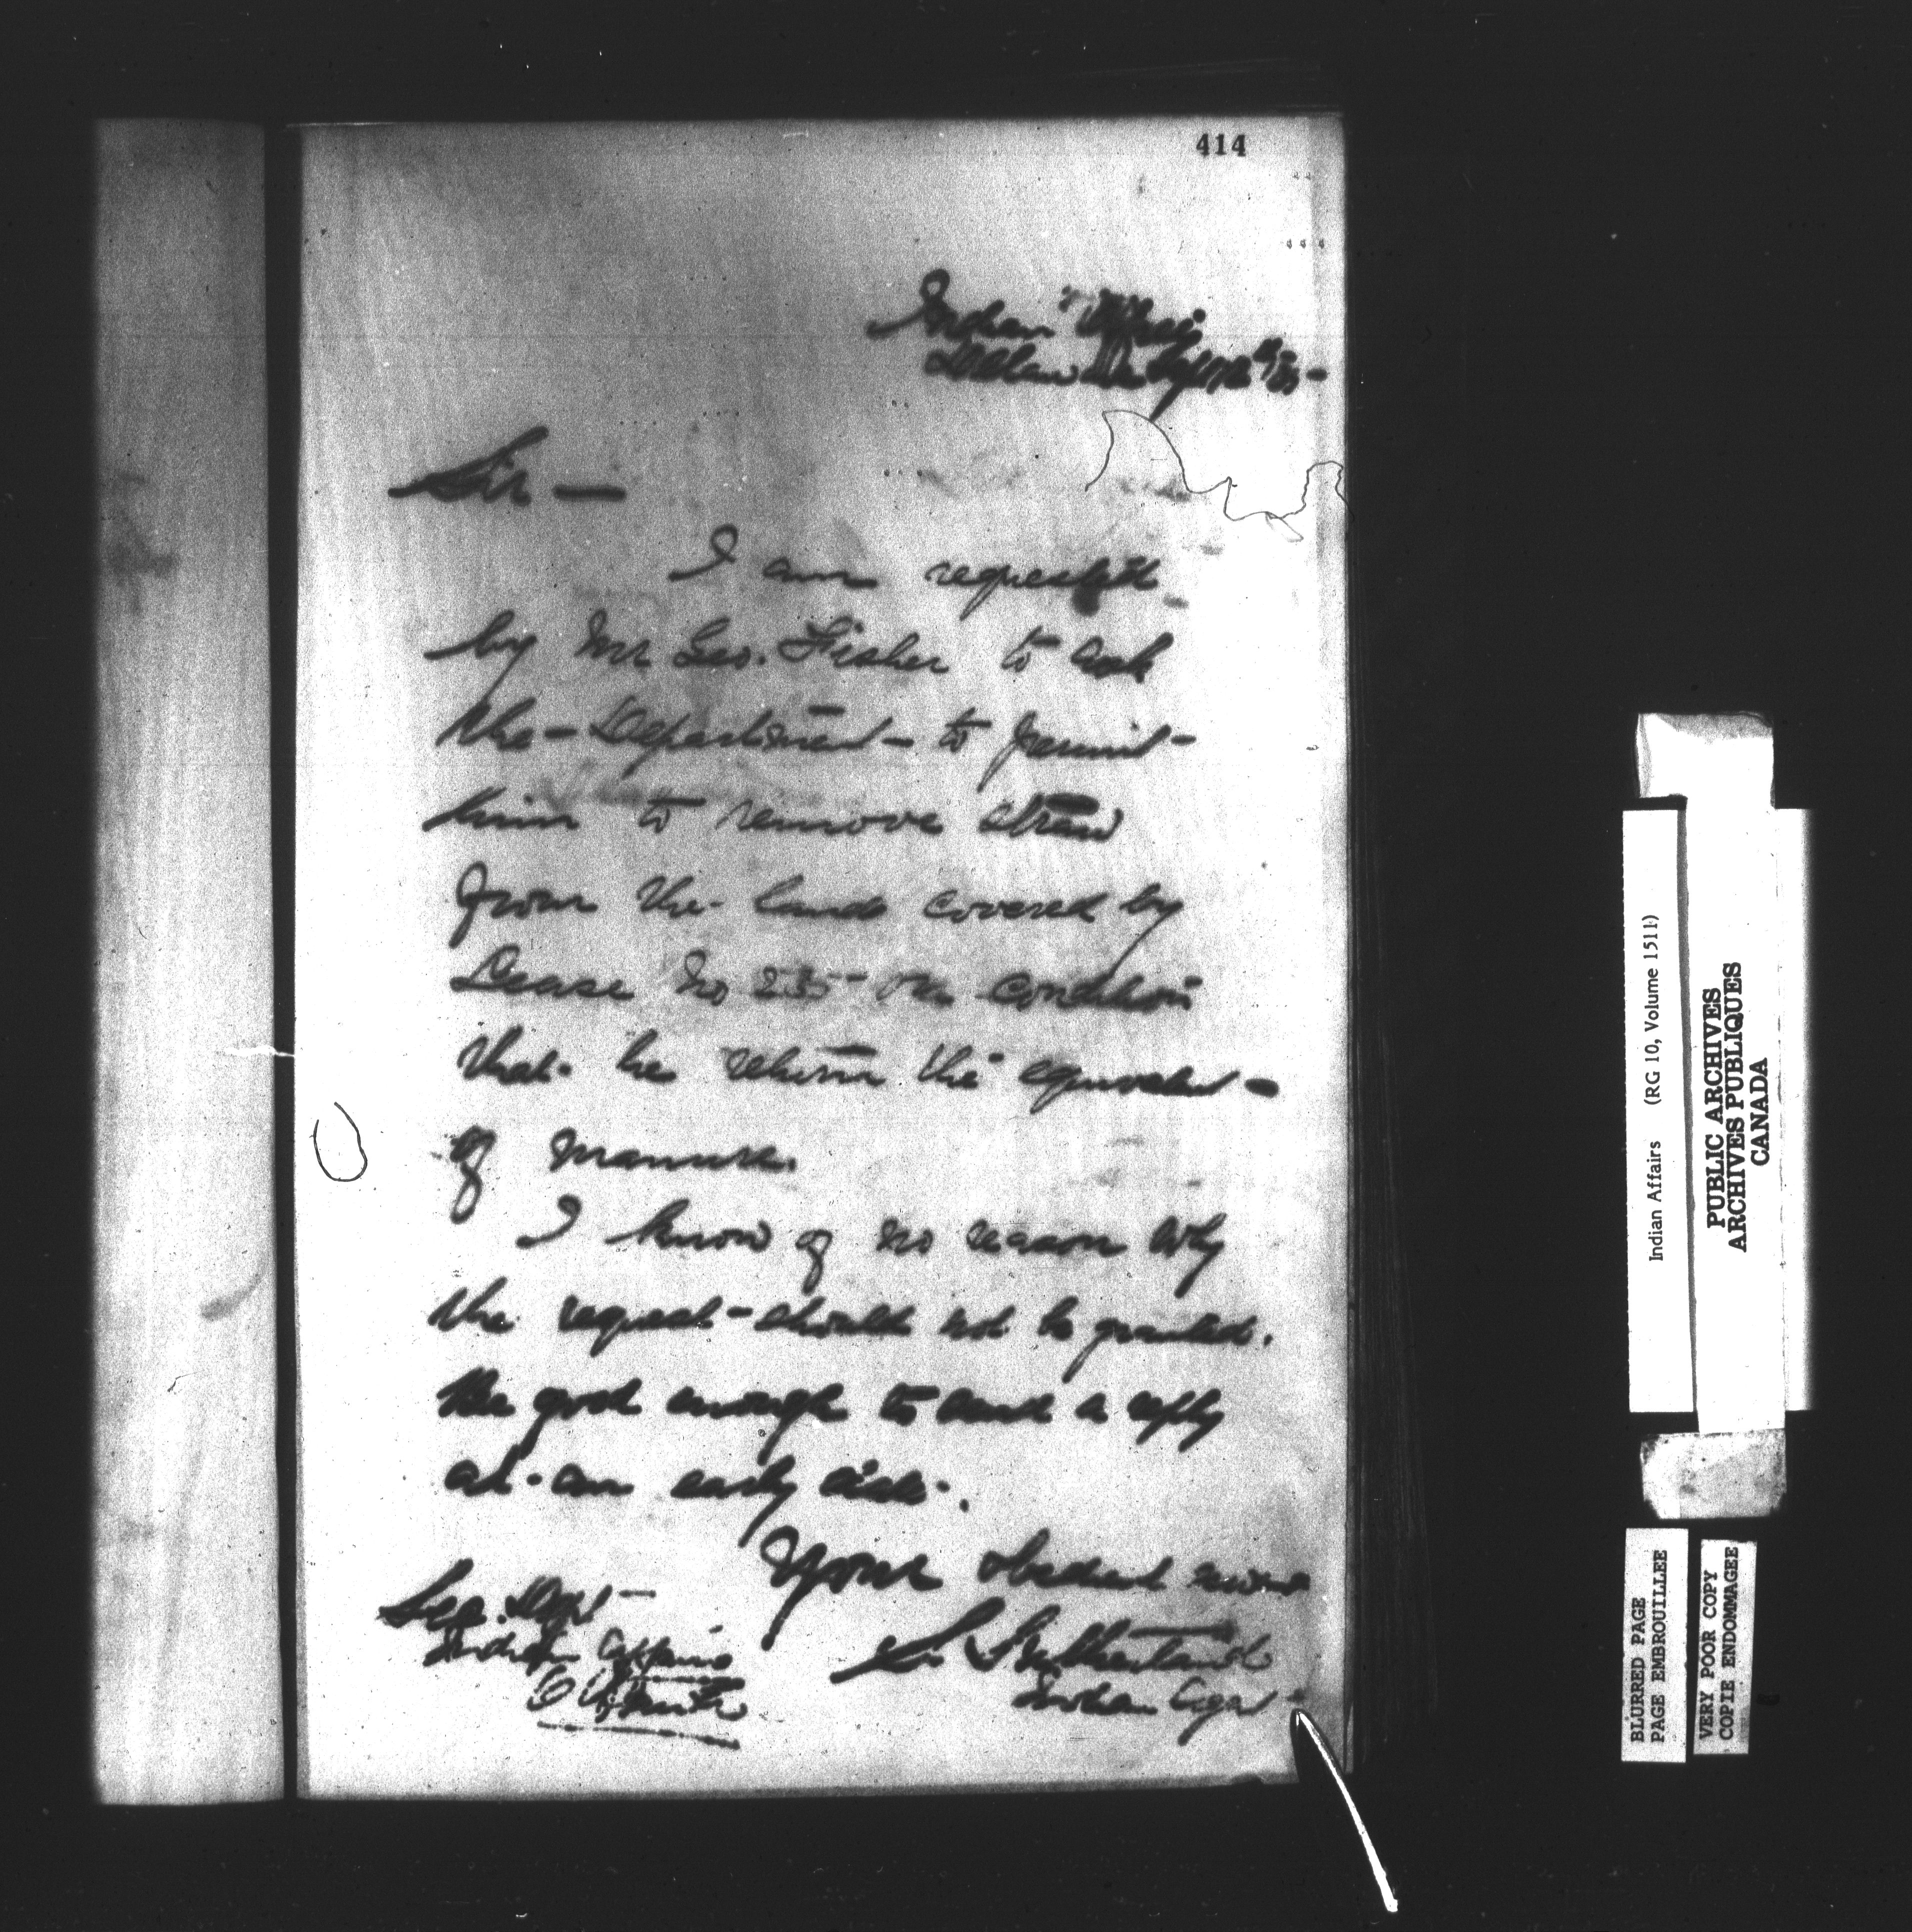 414
Indian Office
Sir —
I am requested
by Mr Geo. Fisher to ask
the - Department - to permit -
him to remove straw
from the - land covered by
Lease No 235 - on condition
that he return the equivalent -
of manure.
I know of no reason why
the request - should not be granted.
Be good enough to send a reply
at an early date.
Your obedient servant
Sec. Dept -
Indian Affairs
Ottawa
Sutherland
Indian Agent
Indian Affairs (RG 10, Volume 1511)
PUBLIC ARCHIVES
ARCHIVES PUBLIQUES
CANADA
BLURRED PAGE
PAGE EMBROUILLEE
VERY POOR COPY
COPIE ENDOMMAGEE